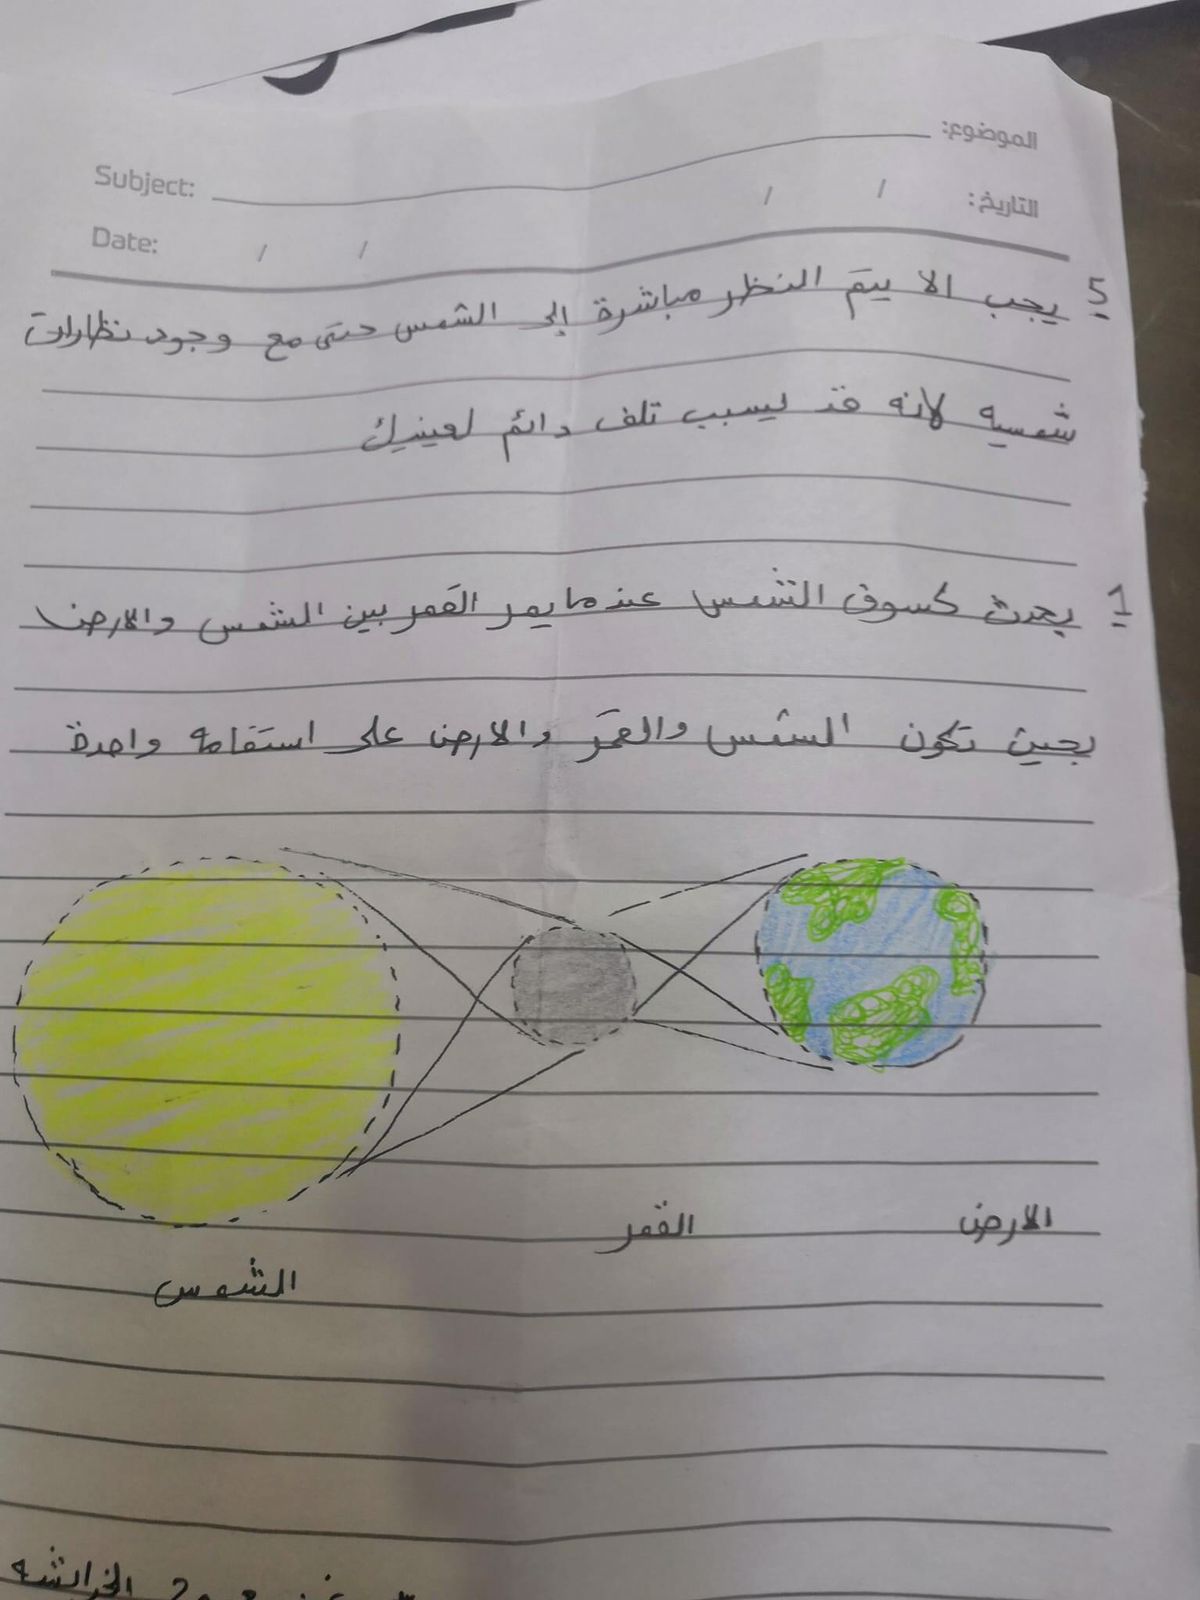 الموضوع:
Subject:
التاريخ: / /
Date: / /
5 يجب الا يتم النظر مباشرة إلى الشمس حتى مع وجود نظارات
شمسيه لانه قد يسبب تلف دائم لعينيك
1 يحدث كسوف الشمس عندما يمر القمر بين الشمس والارض
بحيث تكون الشمس والقمر والارض على استقامه واحدة
الارض
القمر
الشمس